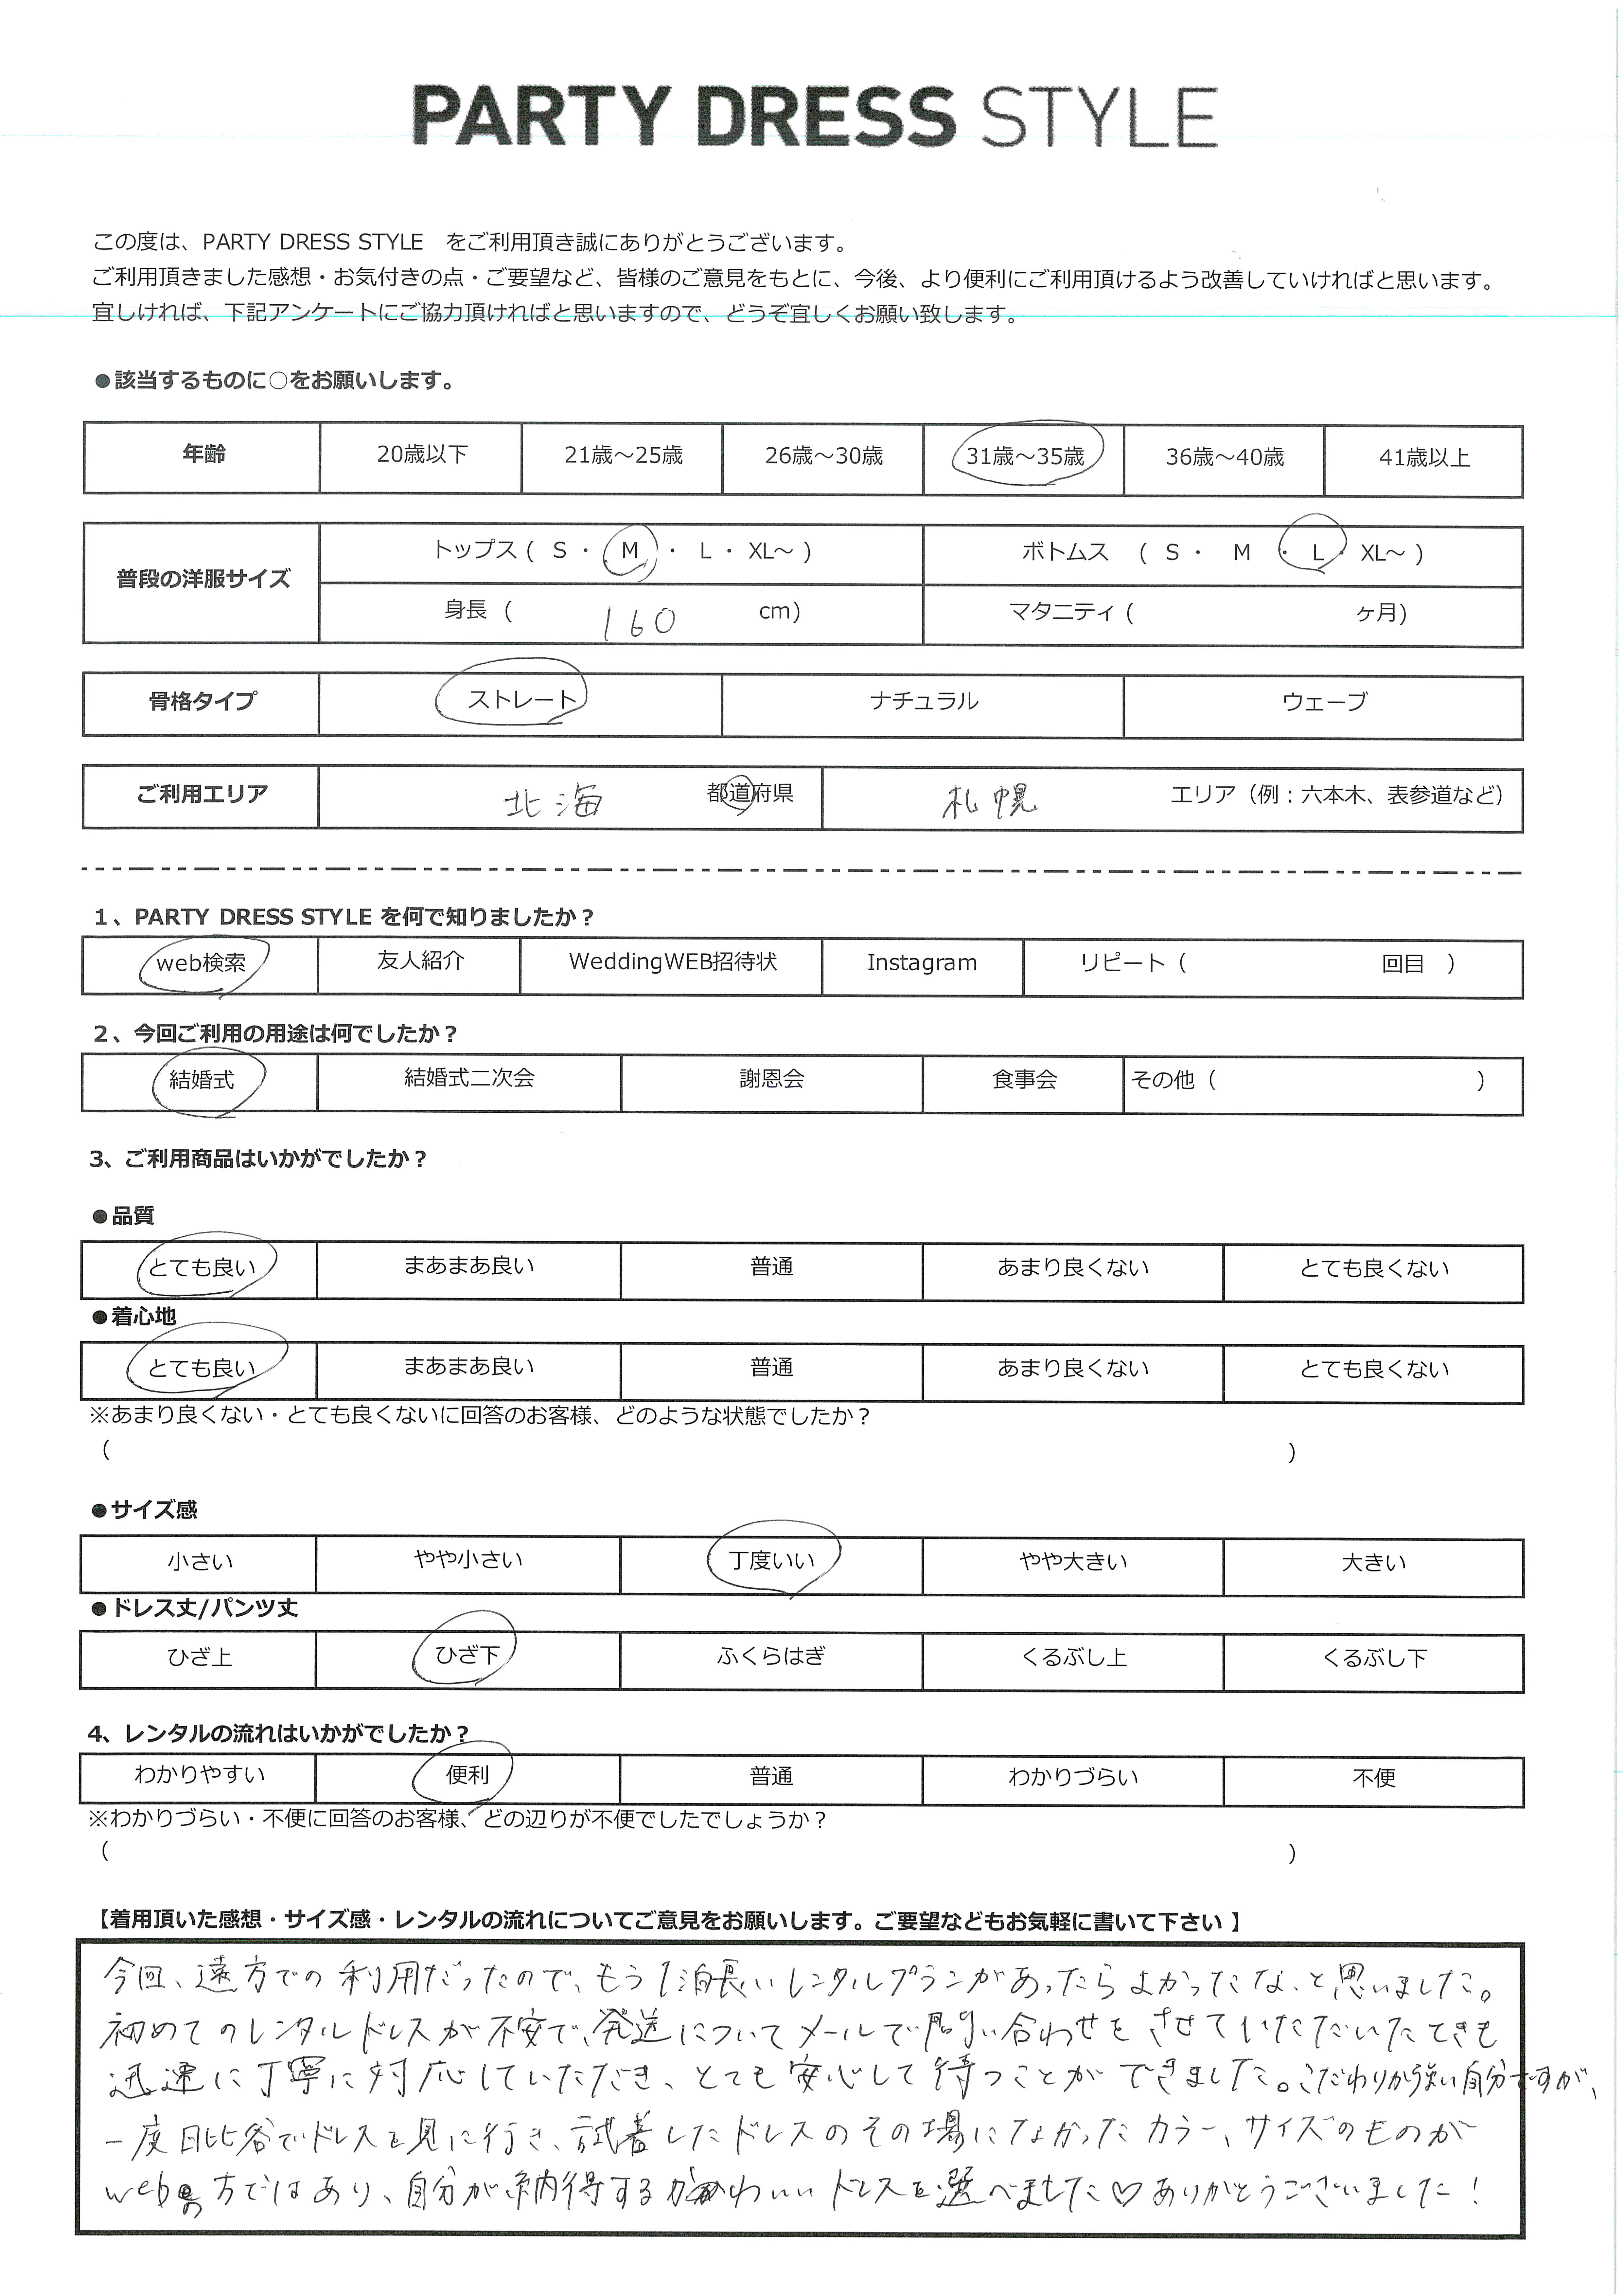 PARTY DRESS STYLE
この度は、PARTY DRESS STYLE　をご利用頂き誠にありがとうございます。
ご利用頂きました感想・お気付きの点・ご要望など、皆様のご意見をもとに、今後、より便利にご利用頂けるよう改善していければと思います。
宜しければ、下記アンケートにご協力頂ければと思いますので、どうぞ宜しくお願い致します。
●該当するものに○をお願いします。
年齢 20歳以下 21歳～25歳 26歳～30歳 31歳～35歳 36歳～40歳 41歳以上
普段の洋服サイズ トップス ( S ・ M ・ L ・ XL～ ) ボトムス ( S ・ M ・ L ・ XL～ )
身長 ( 160 cm) マタニティ ( ヶ月)
骨格タイプ ストレート ナチュラル ウェーブ
ご利用エリア 北海 都道府県 札幌 エリア（例：六本木、表参道など）
1、PARTY DRESS STYLE を何で知りましたか？
web検索 友人紹介 WeddingWEB招待状 Instagram リピート（ 回目 ）
2、今回ご利用の用途は何でしたか？
結婚式 結婚式二次会 謝恩会 食事会 その他（ ）
3、ご利用商品はいかがでしたか？
●品質
とても良い まあまあ良い 普通 あまり良くない とても良くない
●着心地
とても良い まあまあ良い 普通 あまり良くない とても良くない
※あまり良くない・とても良くないに回答のお客様、どのような状態でしたか？
（ ）
●サイズ感
小さい やや小さい 丁度いい やや大きい 大きい
●ドレス丈/パンツ丈
ひざ上 ひざ下 ふくらはぎ くるぶし上 くるぶし下
4、レンタルの流れはいかがでしたか？
わかりやすい 便利 普通 わかりづらい 不便
※わかりづらい・不便に回答のお客様、どの辺りが不便でしたでしょうか？
（ ）
【着用頂いた感想・サイズ感・レンタルの流れについてご意見をお願いします。ご要望などもお気軽に書いて下さい 】
今回、遠方での利用だったので、もう1泊長いレンタルプランがあったらよかったな、と思いました。
初めてのレンタルドレスが不安で、発送についてメールで問い合わせをさせていただいたときも
迅速に丁寧に対応していただき、とても安心して待つことができました。こだわりが強い自分ですが、
一度日比谷でドレスを見に行き、試着したドレスのその場になかったカラー、サイズのものが
webの方ではあり、自分が納得するかわいいドレスを選べました♡ありがとうございました！